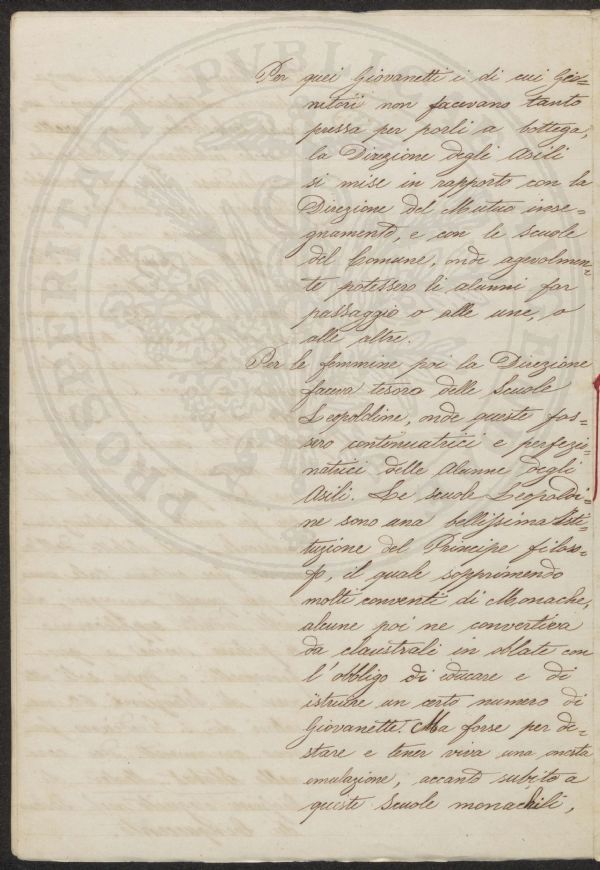 Per quei Giovanetti i di cui Ge=
nitori non facevano tanto
pressa per porli a bottega,
la Direzione degli Asili
si mise in rapporto con la
Direzione del Mutuo inse=
gnamento, e con le scuole
del Comune, onde agevolmen=
te potessero li alunni far
passaggio o alle une, o
alle altre.
Per le femmine poi la Direzione
faceva tesoro delle Scuole
Leopoldine, onde queste fos=
sero continuatrici e perfezio=
natrici delle Alunne degli
Asili. Le scuole Leopoldi=
ne sono una bellissima Isti=
tuzione del Principe filoso=
fo, il quale sopprimendo
molti conventi di Monache,
alcune poi ne convertiva
da claustrali in oblate con
l'obbligo di educare e di
istruire un certo numero di
Giovanette. Ma forse per de=
stare e tener viva una onesta
emulazione, accanto subito a
queste Scuole monachili,
PROSPERITATI PVBLICAE